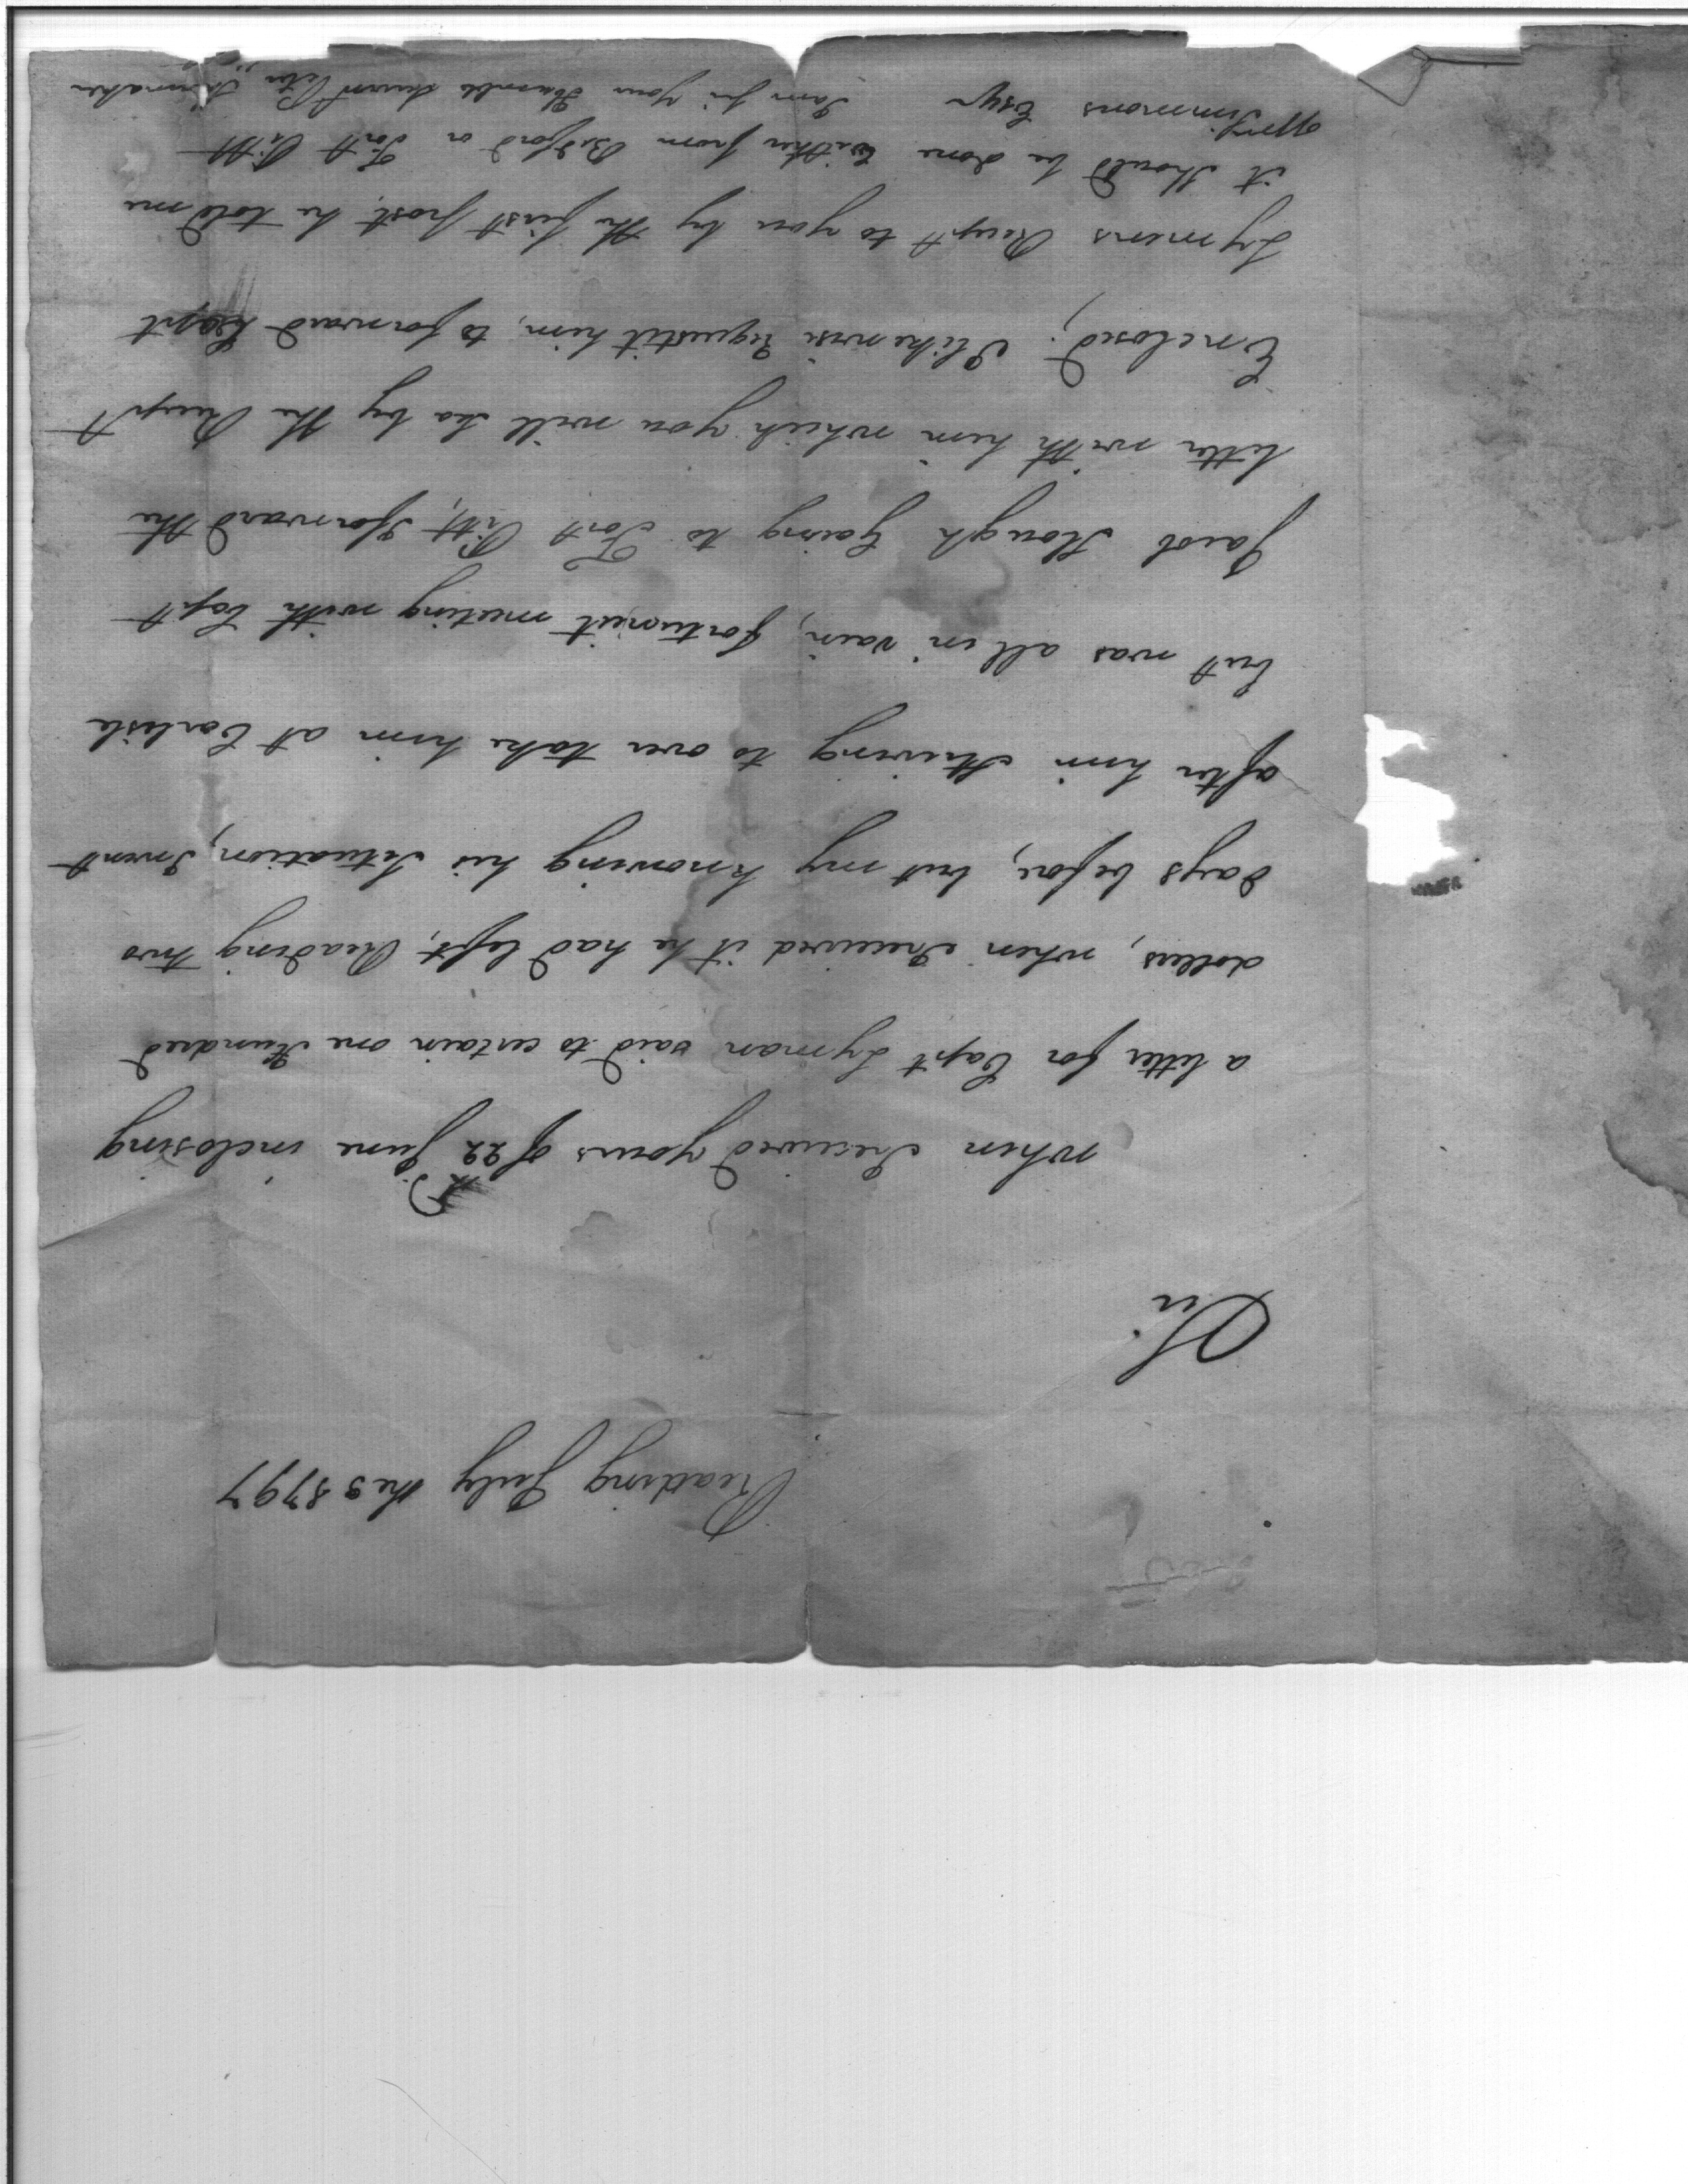 Reading July the 3 1797
Sir
When I received yours of 22 June inclosing
a letter for Capt Lyman said to certain one Hundred
dollers, when I received it he had left, Reading two
days before, but my knowing his Situation, I went
after him striving to over take him at Carlisle
but was all in vain, fortuneit meeting with Capt
Jacob Slough Going to Fort Pitt, I forward the
letter with him which you will sea by the Receipt
Enclosed; I likewise Requestit him, to forward Capt
Lymens Receipt to you by the first post, he told me
it should be done Either from Bedford or Fort Pitt
Simmons Esqr I am Sir your Humble Servant Peter